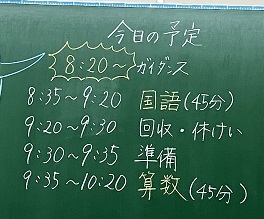 今日の予定
8:20〜 ガイダンス
8:35〜9:20 国語(45分)
9:20〜9:30 回収・休けい
9:30〜9:35 準備
9:35〜10:20 算数(45分)